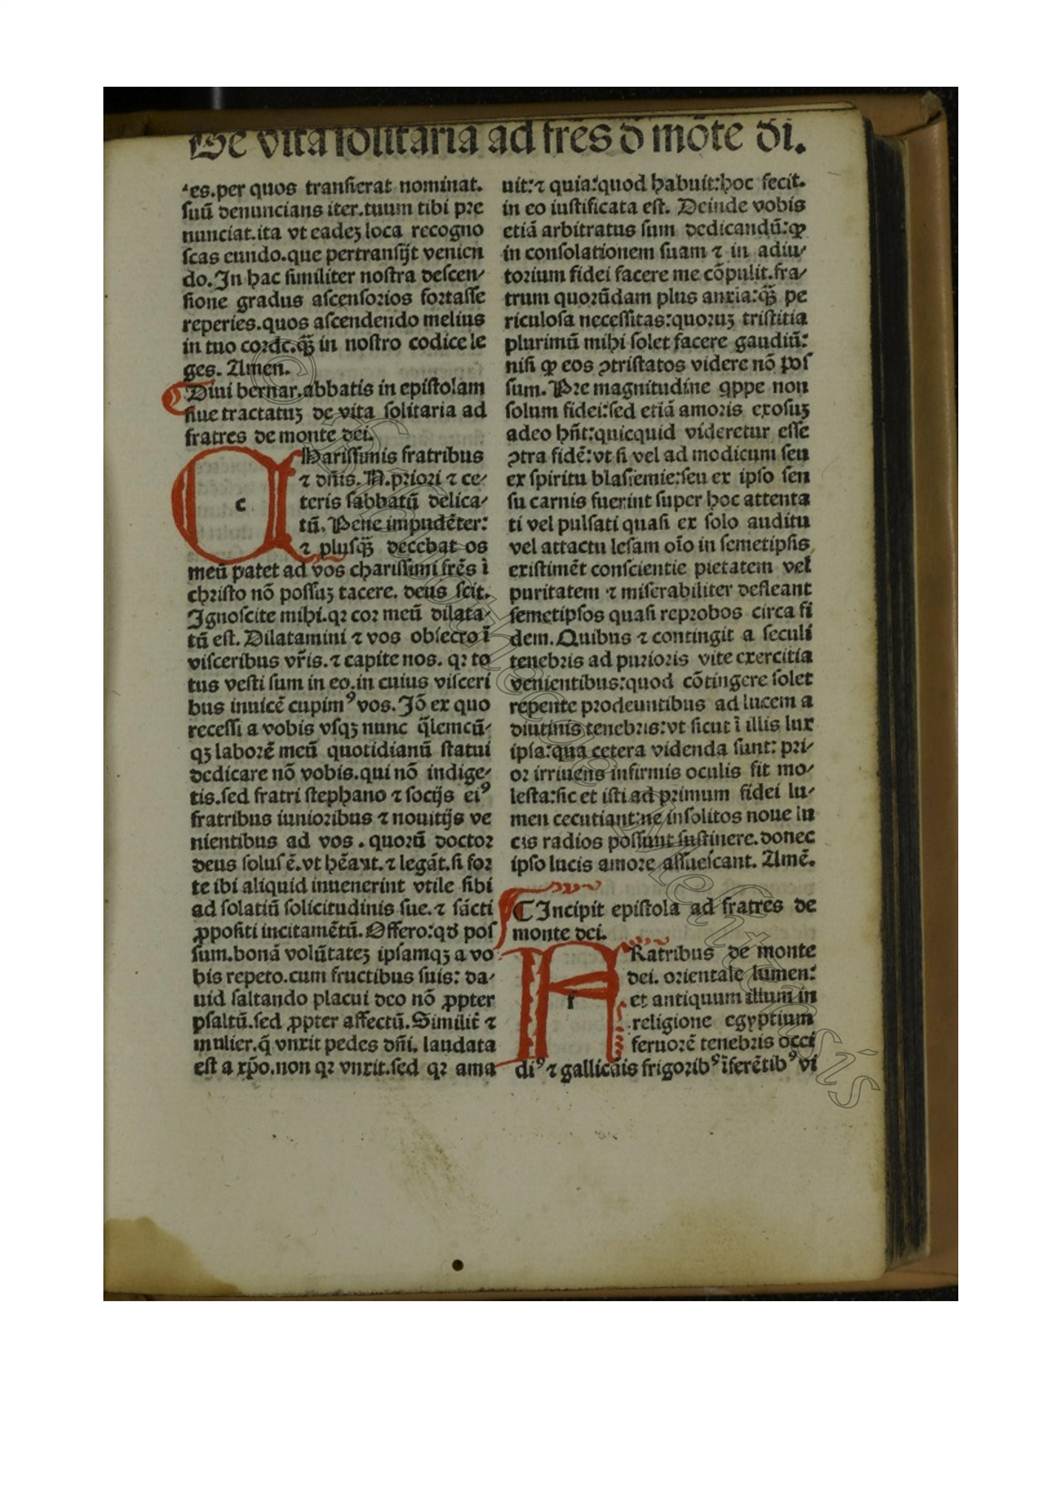 De vita solitaria ad frēs d̄ mōte d̄i.
es.per quos transierat nominat.
suū denuncians iter.tuum tibi pre
nunciat.ita vt eadeꝫ loca recogno
scas eundo.que pertransijt venien
do.In hac similiter nostra descen⸗
sione gradus ascensorios fortasse
reperies.quos ascendendo melius
in tuo corde.qꝫ̄ in nostro codice le
ges. Amen.
Diui bernar.abbatis in epistolam
siue tractatuꝫ de vita solitaria ad
fratres de monte dei.
c
Harissimis fratribus
⁊ dn̄is. N.priori ⁊ ce⸗
teris sabbatū delica⸗
tū. Pene impudēter:
⁊ plusqꝫ̄ decebat os
meū patet ad vos charissimi frēs ī
christo nō possuꝫ tacere. deus scit.
Ignoscite mihi.qꝛ cor meū dilata⸗
tū est. Dilatamini ⁊ vos obsecro ī
visceribus vr̄is.⁊ capite nos. qꝛ to
tus vesti sum in eo.in cuius visceri
bus inuicē cupimꝰ vos. Iō ex quo
recessi a vobis vsqꝫ nunc q̄lemcū⸗
qꝫ laborē meū quotidianū statui
dedicare nō vobis.qui nō indige⸗
tis.sed fratri stephano ⁊ socijs eiꝰ
fratribus iunioribus ⁊ nouitijs ve
nientibus ad vos . quorū doctor
deus solus ē.vt hēāt.⁊ legāt.si for
te ibi aliquid inuenerint vtile sibi
ad solatiū solicitudinis sue.⁊ sācti
ꝓpositi incitamētū. Offero:qd̄ pos
sum.bonā volūtateꝫ ipsamqꝫ a vo
bis repeto.cum fructibus suis: da⸗
uid saltando placui deo nō ꝓpter
psaltū.sed ꝓpter affectū. Similit̄ ⁊
mulier.q̄ vnxit pedes dn̄i. laudata
est a xp̄o.non qꝛ vnxit.sed qꝛ ama
uit:⁊ quia:quod habuit:hoc fecit.
in eo iustificata est. Deinde vobis
etiā arbitratus sum dedicandū:ꝙ
in consolationem suam ⁊ in adiu⸗
torium fidei facere me cōpulit.fra⸗
trum quorūdam plus anxia:qꝫ̄ pe
riculosa necessitas:quoruꝫ tristitia
plurimū mihi solet facere gaudiū:
nisi ꝙ eos ꝯtristatos videre nō pos
sum. Pre magnitudine q̄ppe non
solum fidei:sed etiā amoris exosuꝫ
adeo hn̄t:quicquid videretur esse
ꝯtra fidē:vt si vel ad modicum seu
ex spiritu blasfemie:seu ex ipso sen
su carnis fuerint super hoc attenta
ti vel pulsati quasi ex solo auditu
vel attactu lesam oīo in semetipsis
existimēt conscientie pietatem vel
puritatem ⁊ miserabiliter defleant
semetipsos quasi reprobos circa fi
dem. Quibus ⁊ contingit a seculi
tenebris ad purioris vite exercitia
venientibus:quod cōtingere solet
repente prodeuntibus ad lucem a
diutinis tenebris:vt sicut ī illis lux
ipsa:qua cetera videnda sunt: pri⸗
or irruens infirmis oculis fit mo⸗
lesta:sic et isti ad primum fidei lu⸗
men cecutiant:ne insolitos noue lu
cis radios possunt sustinere.donec
ipso lucis amore assuescant. Amē.
Incipit epistola ad fratres de
monte dei.
f
Ratribus de monte
dei. orientale lumen:
et antiquum illum in
religione egyptium
feruorē tenebris occi
diꝰ ⁊ gallicāis frigoribꝰ īferētibꝰ vi